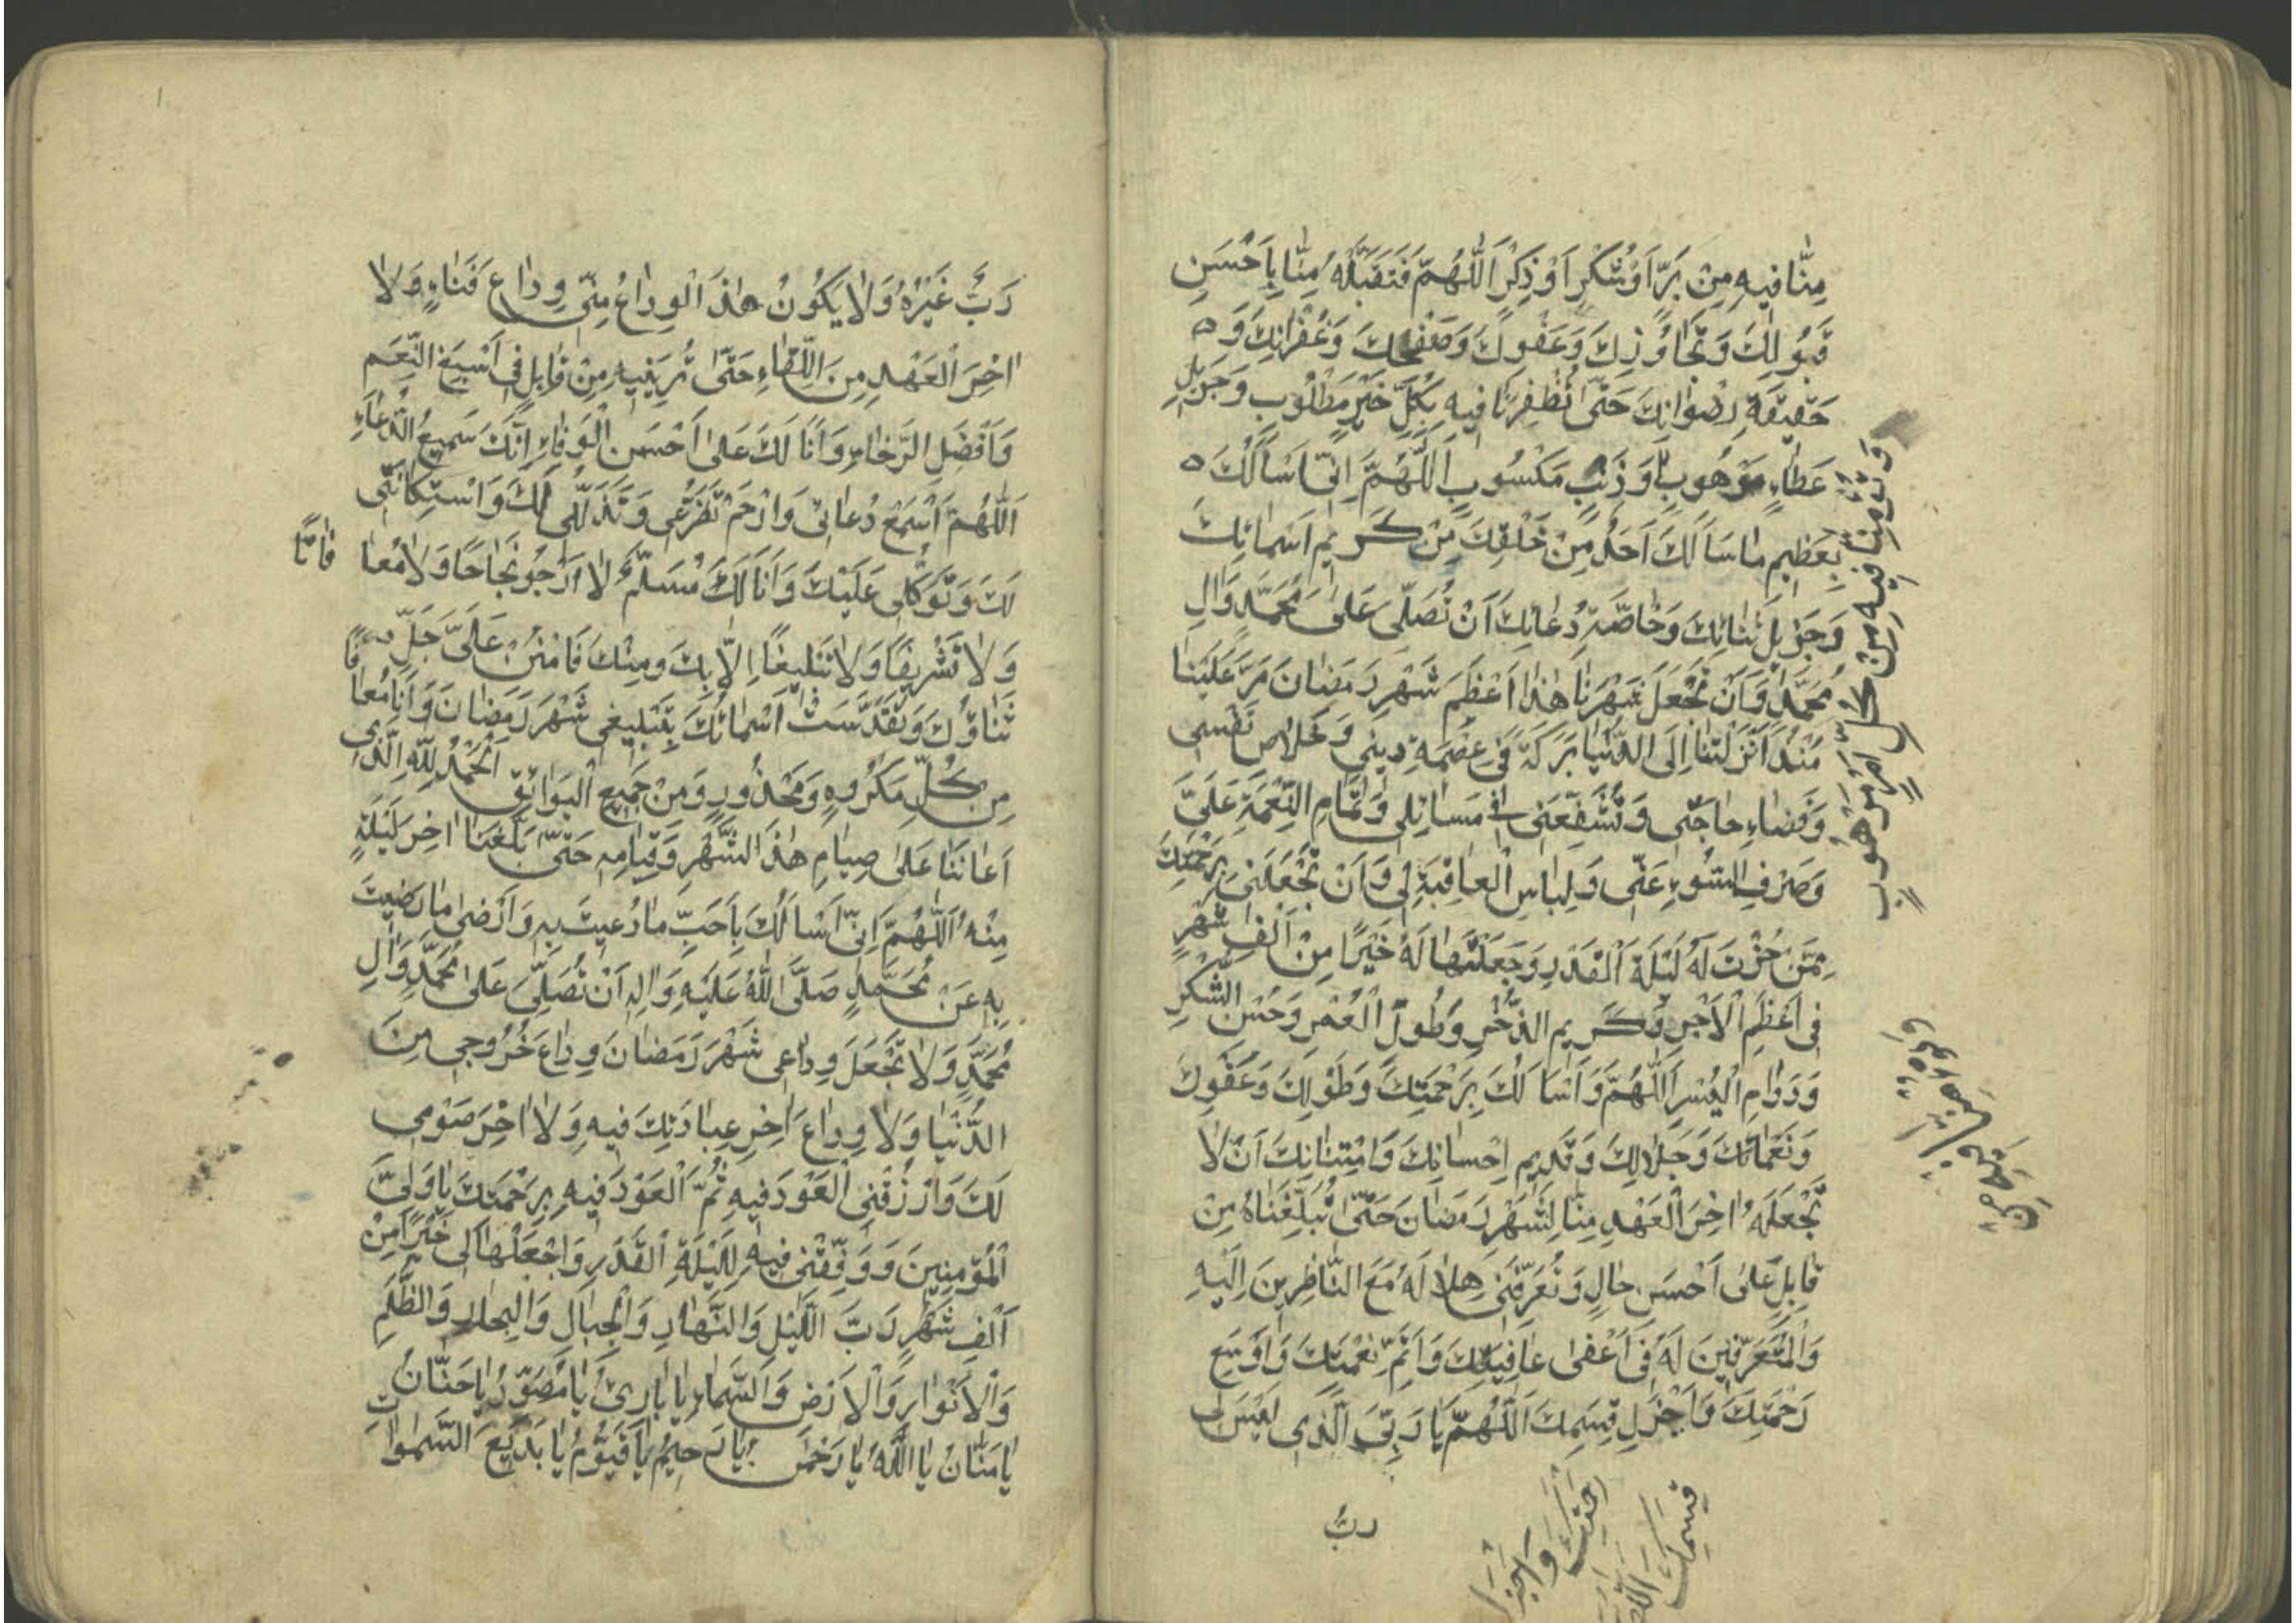 مِنّٰا فيهِ مِنْ بَرٍّ اَوْ شُكْرٍ اَوْ ذِكْرٍ اَللّٰهُمَّ فَتَقَبَّلْهُ مِنّٰا بِاَحْسَنِ
قَبُولِكَ وَتَجٰاوُزِكَ وَعَفْوِكَ وَصَفْحِكَ وَغُفْرٰانِكَ وَ
حَقيقَةِ رِضْوٰانِكَ حَتّٰى تُظْفِرَنٰا فيهِ بِكُلِّ خَيْرٍ مَطْلُوبٍ وَجَزيلِ
عَطٰاءٍ مَوْهُوبٍ وَذَنْبٍ مَكْسُوبٍ اَللّٰهُمَّ اِنّى اَسْاَلُكَ
بِعَظيمِ مٰا سَاَلَكَ اَحَدٌ مِنْ خَلْقِكَ مِنْ كَريمِ اَسْمٰائِكَ
وَجَزيلِ ثَنٰائِكَ وَخٰاصَّةِ دُعٰائِكَ اَنْ تُصَلِّىَ عَلىٰ مُحَمَّدٍ وَاٰلِ
مُحَمَّدٍ وَاَنْ تَجْعَلَ شَهْرَنٰا هٰذٰا اَعْظَمَ شَهْرِ رَمَضٰانَ مَرَّ عَلَيْنٰا
مُنْذُ اَنْزَلْتَنٰا اِلَى الدُّنْيٰا بَرَكَةً فى عِصْمَةِ ديني وَخَلاٰصِ نَفْسى
وَقَضٰاءِ حٰاجَتى وَتُشَفِّعَنى فى مَسٰائِلى وَتَمٰامِ النِّعْمَةِ عَلَىَّ
وَصَرْفِ السُّوءِ عَنّى وَلِبٰاسِ الْعٰافِيَةِ لى وَاَنْ تَجْعَلَنى بِرَحْمَتِكَ
مِمَّنْ حُزْتَ لَهُ لَيْلَةَ الْقَدْرِ وَجَعَلْتَهٰا لَهُ خَيْرًا مِنْ اَلْفِ شَهْرٍ
فى اَعْظَمِ الْاَجْرِ وَكَريمِ الذُّخْرِ وَطُولِ الْعُمْرِ وَحُسْنِ الشُّكْرِ
وَدَوٰامِ الْيُسْرِ اَللّٰهُمَّ وَاَسْاَلُكَ بِرَحْمَتِكَ وَطَوْلِكَ وَعَفْوِكَ
وَنَعْمٰائِكَ وَجَلاٰلِكَ وَقَديمِ اِحْسٰانِكَ وَامْتِنٰانِكَ اَنْ لاٰ
تَجْعَلَهُ اٰخِرَ الْعَهْدِ مِنّٰا لِشَهْرِ رَمَضٰانَ حَتّٰى تُبَلِّغَنٰاهُ مِنْ
قٰابِلٍ عَلىٰ اَحْسَنِ حٰالٍ وَتُعَرِّفَنى هِلاٰلَهُ مَعَ النّٰاظِرينَ اِلَيْهِ
وَالْمُتَعَرِّفينَ لَهُ فى اَعْفىٰ عٰافِيَتِكَ وَاَتَمِّ نِعْمَتِكَ وَاَوْسَعِ
رَحْمَتِكَ وَاَجْزَلِ قِسَمِكَ اَللّٰهُمَّ يٰا رَبِّىَ الَّذى لَيْسَ لى
ربٌّ
مِنّٰا فيهِ مِنْ كُلِّ اَمْرٍ مَرْهُوبٍ
رَبٌّ غَيْرُهُ وَلاٰ يَكُونُ هٰذَا الْوِدٰاعُ مِنّى وِدٰاعَ فَنٰاءٍ وَلاٰ
اٰخِرَ الْعَهْدِ مِنَ اللِّقٰاءِ حَتّٰى تُرِيَنيهِ مِنْ قٰابِلٍ فى اَسْبَغِ النِّعَمِ
وَاَفْضَلِ الرَّخٰاءِ وَاَنَا لَكَ عَلىٰ اَحْسَنِ الْوَفٰاءِ اِنَّكَ سَميعُ الدُّعٰاءِ
اَللّٰهُمَّ اَسْمَعْ دُعٰائى وَارْحَمْ تَضَرُّعى وَتَذَلُّلى لَكَ وَاسْتِكٰانَتى
لَكَ وَتَوَكُّلى عَلَيْكَ وَاَنَا لَكَ مُسَلِّمٌ لاٰ اَرْجُو نَجٰاحًا وَلاٰ مُعٰا فٰاتًا
وَلاٰ تَشْريفًا وَلاٰ تَبْليغًا اِلاّٰ بِكَ وَمِنْكَ فَامْنُنْ عَلَىَّ جَلَّ
ثَنٰاؤُكَ وَتَقَدَّسَتْ اَسْمٰائُكَ بِتَبْليغى شَهْرَ رَمَضٰانَ وَاَنَا مُعٰافًا
مِنْ كُلِّ مَكْرُوهٍ وَمَحْذُورٍ وَمِنْ جَميعِ الْبَوٰائِقِ اَلْحَمْدُ لِلّٰهِ الَّذى
اَعٰانَنٰا عَلىٰ صِيٰامِ هٰذَا الشَّهْرِ وَقِيٰامِهِ حَتّٰى بَلَّغَنٰا اٰخِرَ لَيْلَةٍ
مِنْهُ اَللّٰهُمَّ اِنّى اَسْاَلُكَ بِاَحَبِّ مٰا دُعيتَ بِهِ وَاَرْضىٰ مٰا رَضيتَ
بِهِ عَنْ مُحَمَّدٍ صَلَّى اللّٰهُ عَلَيْهِ وَاٰلِهِ اَنْ تُصَلِّىَ عَلىٰ مُحَمَّدٍ وَاٰلِ
مُحَمَّدٍ وَلاٰ تَجْعَلَ وِدٰاعى شَهْرَ رَمَضٰانَ وِدٰاعَ خُرُوجى مِنَ
الدُّنْيٰا وَلاٰ وِدٰاعَ اٰخِرِ عِبٰادَتِكَ فيهِ وَلاٰ اٰخِرَ صَوْمى
لَكَ وَارْزُقْنِى الْعَوْدَ فيهِ ثُمَّ الْعَوْدَ فيهِ بِرَحْمَتِكَ يٰا وَلِىَّ
الْمُؤْمِنينَ وَوَفِّقْنى فيهِ لِلَيْلَةِ الْقَدْرِ وَاجْعَلْهٰا لى خَيْرًا مِنْ
اَلْفِ شَهْرٍ رَبَّ اللَّيْلِ وَالنَّهٰارِ وَالْجِبٰالِ وَالْبِحٰارِ وَالظُّلَمِ
وَالْاَنْوٰارِ وَالْاَرْضِ وَالسَّمٰاءِ يٰا بٰارِئُ يٰا مُصَوِّرُ يٰا حَنّٰانُ
يٰا مَنّٰانُ يٰا اَللّٰهُ يٰا رَحْمٰنُ يٰا رَحيمُ يٰا قَيُّومُ يٰا بَديعَ السَّمٰوٰاتِ